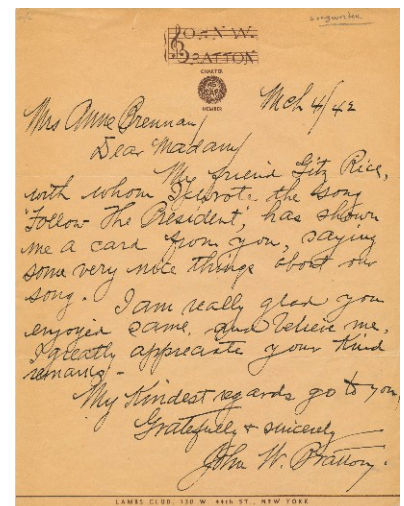 songwriter
JOHN W.
BRATTON
CHARTER
MEMBER
Mch 4/42
Mrs Anne Brennan/
Dear Madam/
My friend Gitz Rice,
with whom I wrote the song
'Follow The President', has shown
me a card from you, saying
some very nice things about our
song. I am really glad you
enjoyed same, and believe me,
I greatly appreciate your kind
remarks -
My Kindest regards go to you,
Gratefully & sincerely
John W. Bratton.
LAMBS CLUB, 130 W. 44th ST., NEW YORK